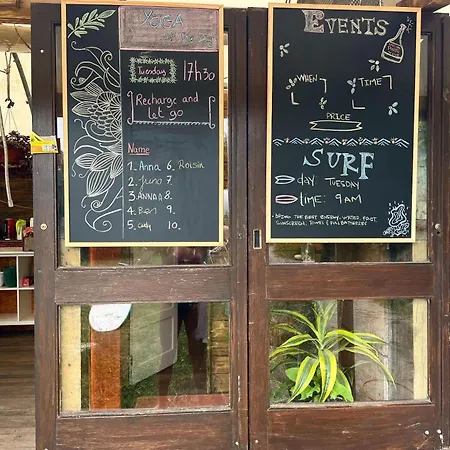 YOGA
of the Day
Tuesday 17h30
Recharge and
let go
Name
1. Anna 6. Roisin
2. Juno 7.
3. ANNAH 8.
4. Ben 9.
5. Cathy 10.
EVENTS
WHEN TIME
PRICE
SURF
DAY: TUESDAY
TIME: 9AM
BRING THE BEST ENERGY, WATER, FOOD,
SUNSCREEN, TOWEL &